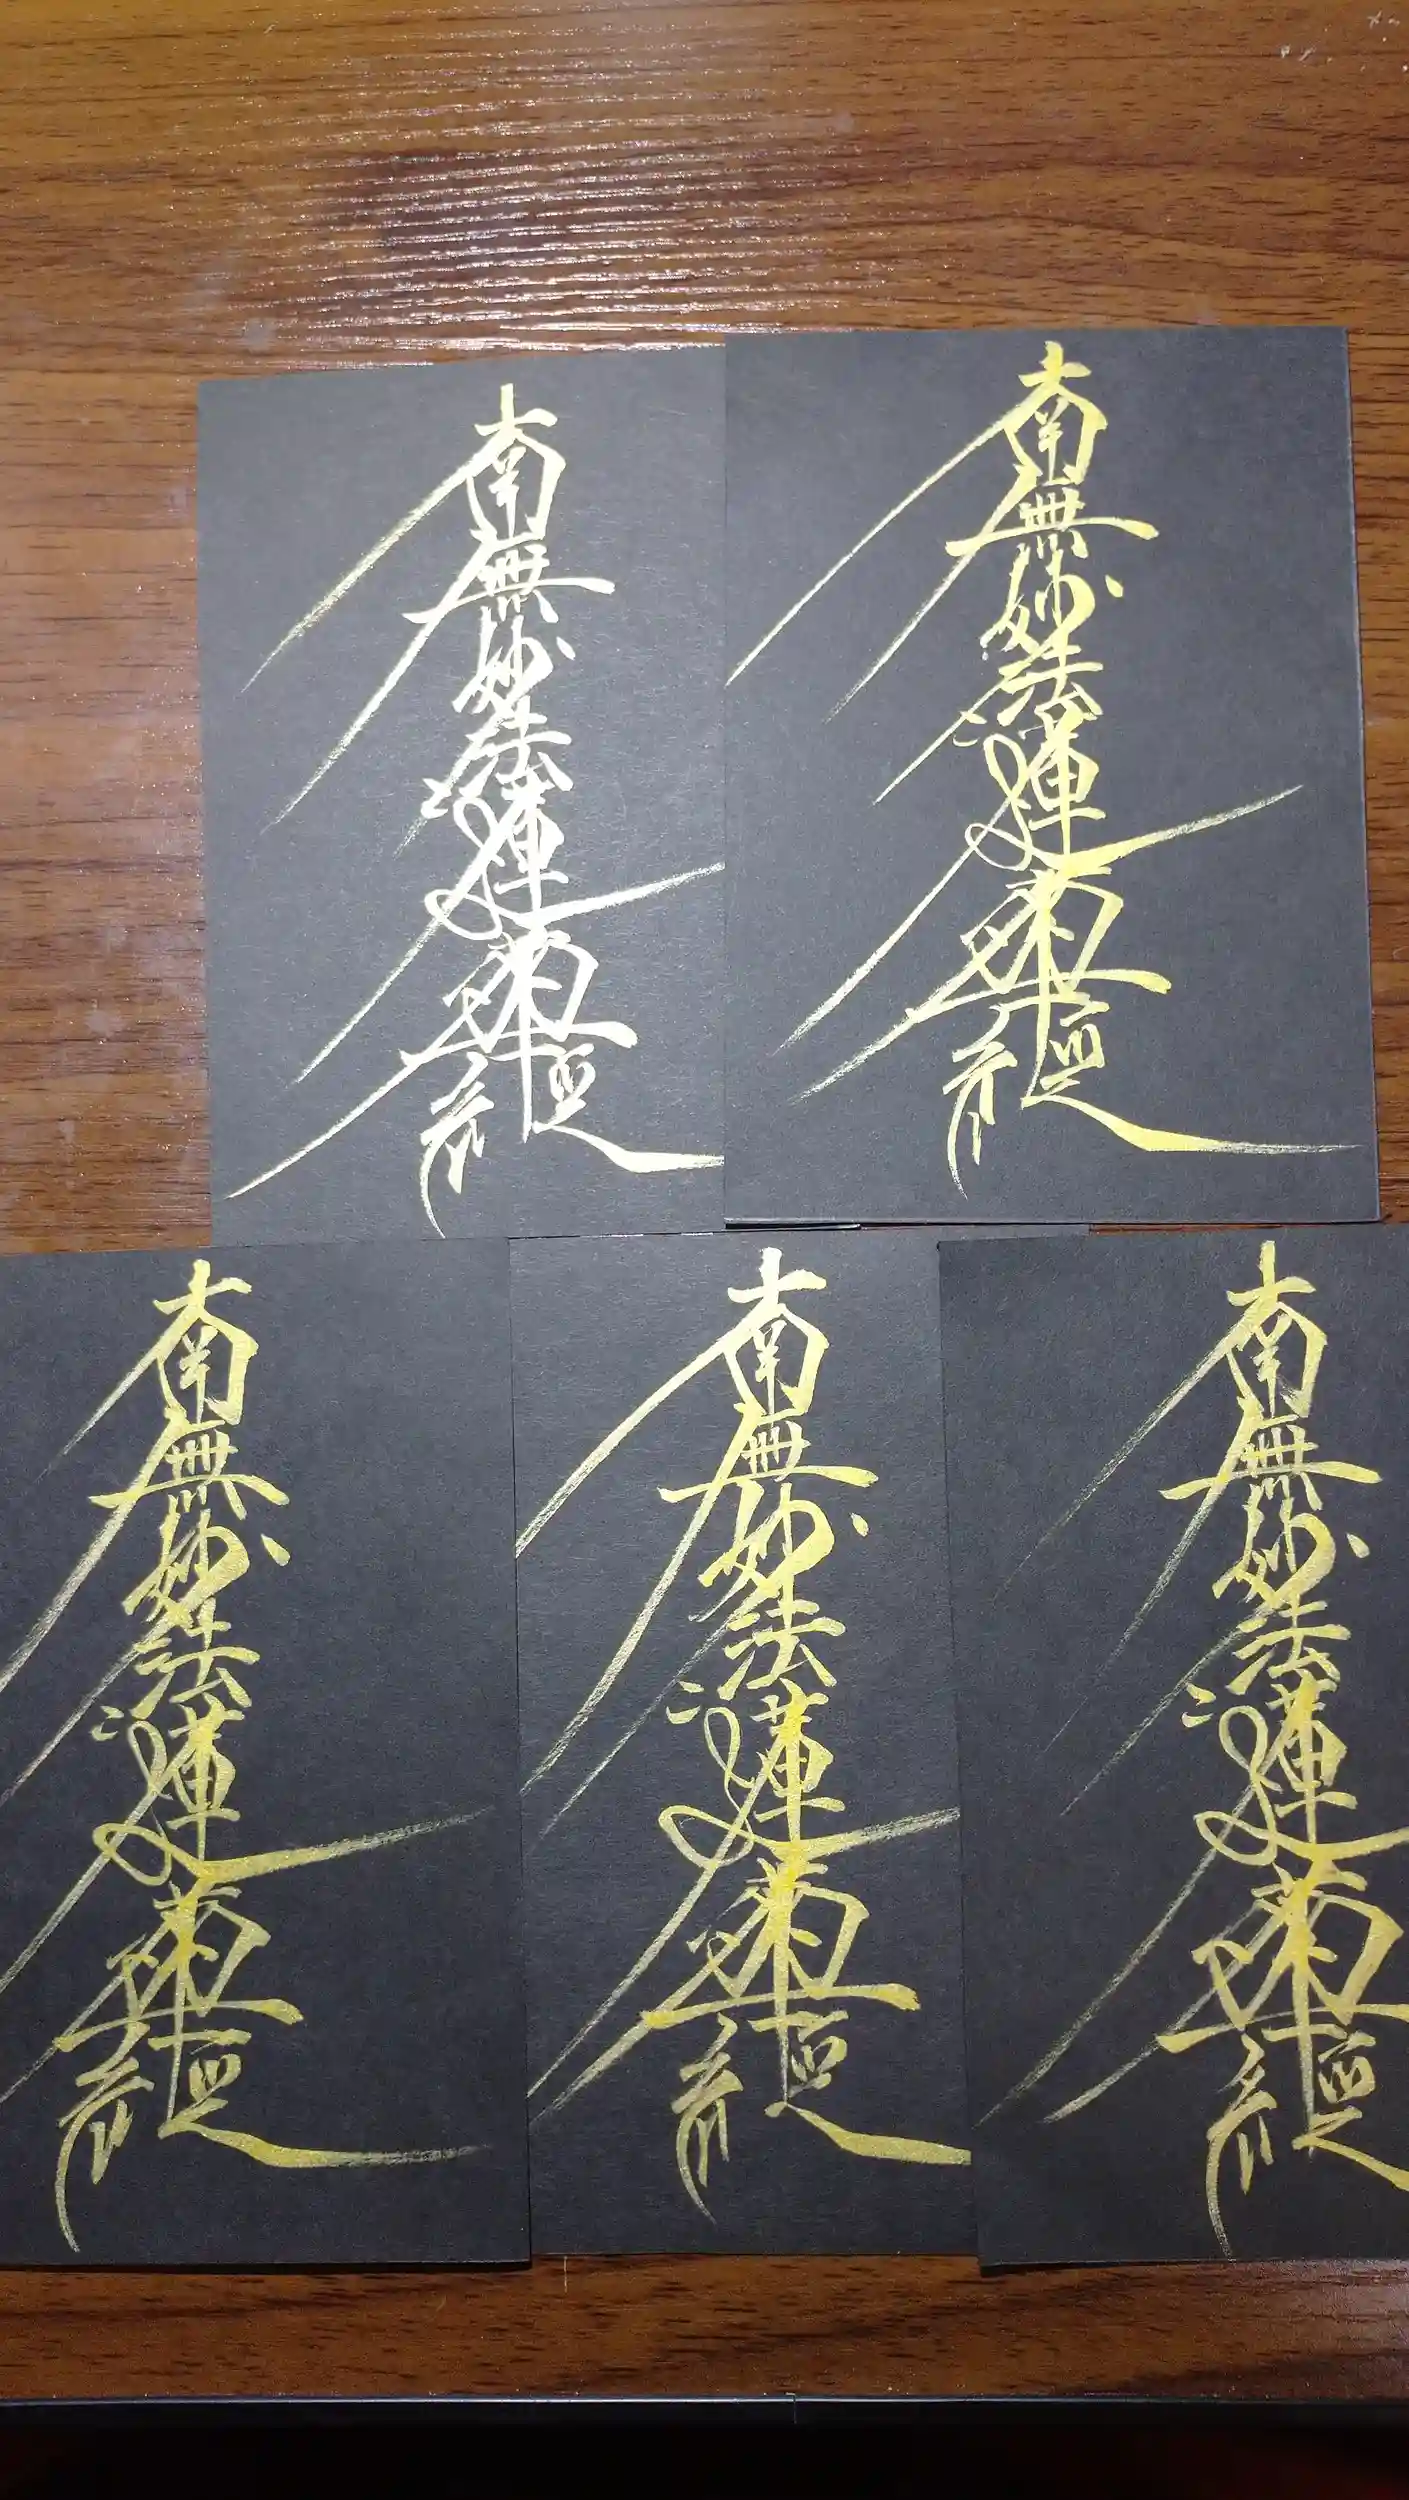 南無妙法蓮華經
南無妙法蓮華經
南無妙法蓮華經
南無妙法蓮華經
南無妙法蓮華經